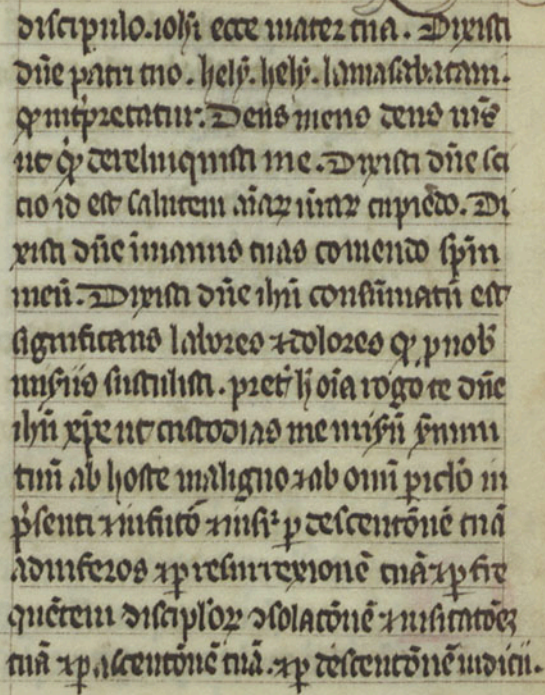 discipulo. iohi ecce mater tua. Dixisti
dn̄e patri tuo. hely. hely. lamasabatani.
q̄ int̓pretatur. Deus meus deus m̄s
ut q̓d dereliquisti me. Dixisti dn̄e sci
cio id est salutem aīaꝝ īr̄aꝝ cupiēdo. Di
xisti dn̄e ī manus tuas comendo sp̄m
meū. Dixisti dn̄e ih̄u consūmatū est
significans labores ⁊ dolores q̄ p nob̄
mis̓is sustulisti. pret̓ h̓ oīa rogo te dn̄e
ih̄u xp̄e ut custodias me mis̓ū s̓uum
tuū ab hoste maligno ⁊ ab omī ꝑiclō in
p̓senti ⁊ in futō ⁊ ꝑ descentōnē tuā
ad inferos ⁊ ꝑ resurrexionē tuā ⁊ ꝑ fre
quētem disciplōꝝ ↄsolatōnē ⁊ uisitatōēꝫ
tuā ⁊ ꝑ ascentōnē tuā. ⁊ ꝑ descentōnē iudicii.